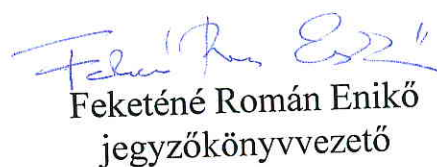 Feketéné Román Enikő
jegyzőkönyvvezető